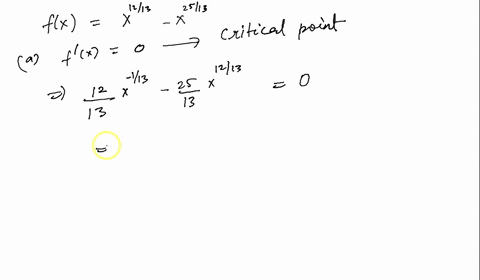 f(x) = x^{12/13} - x^{25/13}
(a) f'(x) = 0 ⟶ critical point
⇒) 12/13 x^{-1/13} - 25/13 x^{12/13} = 0
=